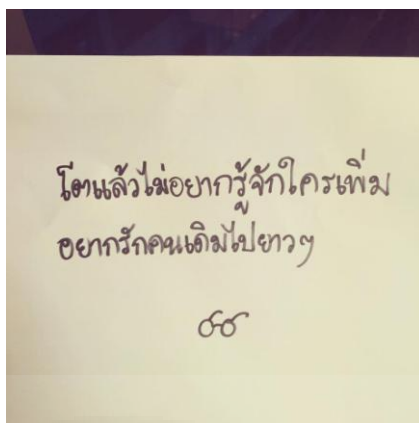 โตแล้วไม่อยากรู้จักใครเพิ่ม
อยากรักคนเดิมไปยาวๆ